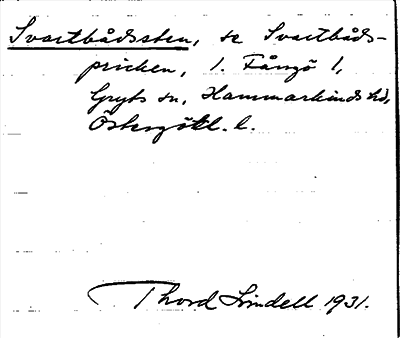 Svartbådssten, se Svartbåds-
pricken, 1. Fångö 1,
Gryts sn, Hammarkinds hd,
Östergötl. l.
Thord Lindell 1931.